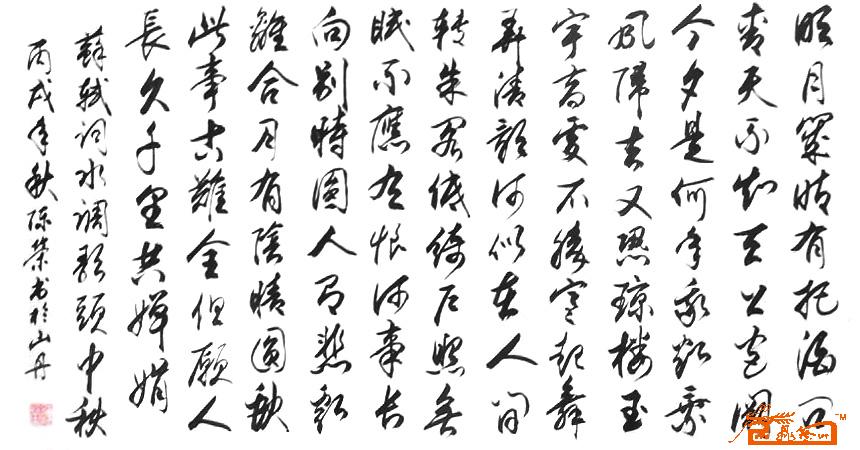 明月幾時有把酒问
青天不知天上宫闕
今夕是何年我欲乘
风歸去又恐琼楼玉
宇高處不勝寒起舞
弄清影何似在人间
转朱阁低绮户照無
眠不應有恨何事长
向别時圆人有悲歡
離合月有陰晴圆缺
此事古難全但願人
長久千里共婵娟
蘇轼词水调歌頭中秋
丙戌年秋陈荣书於山丹